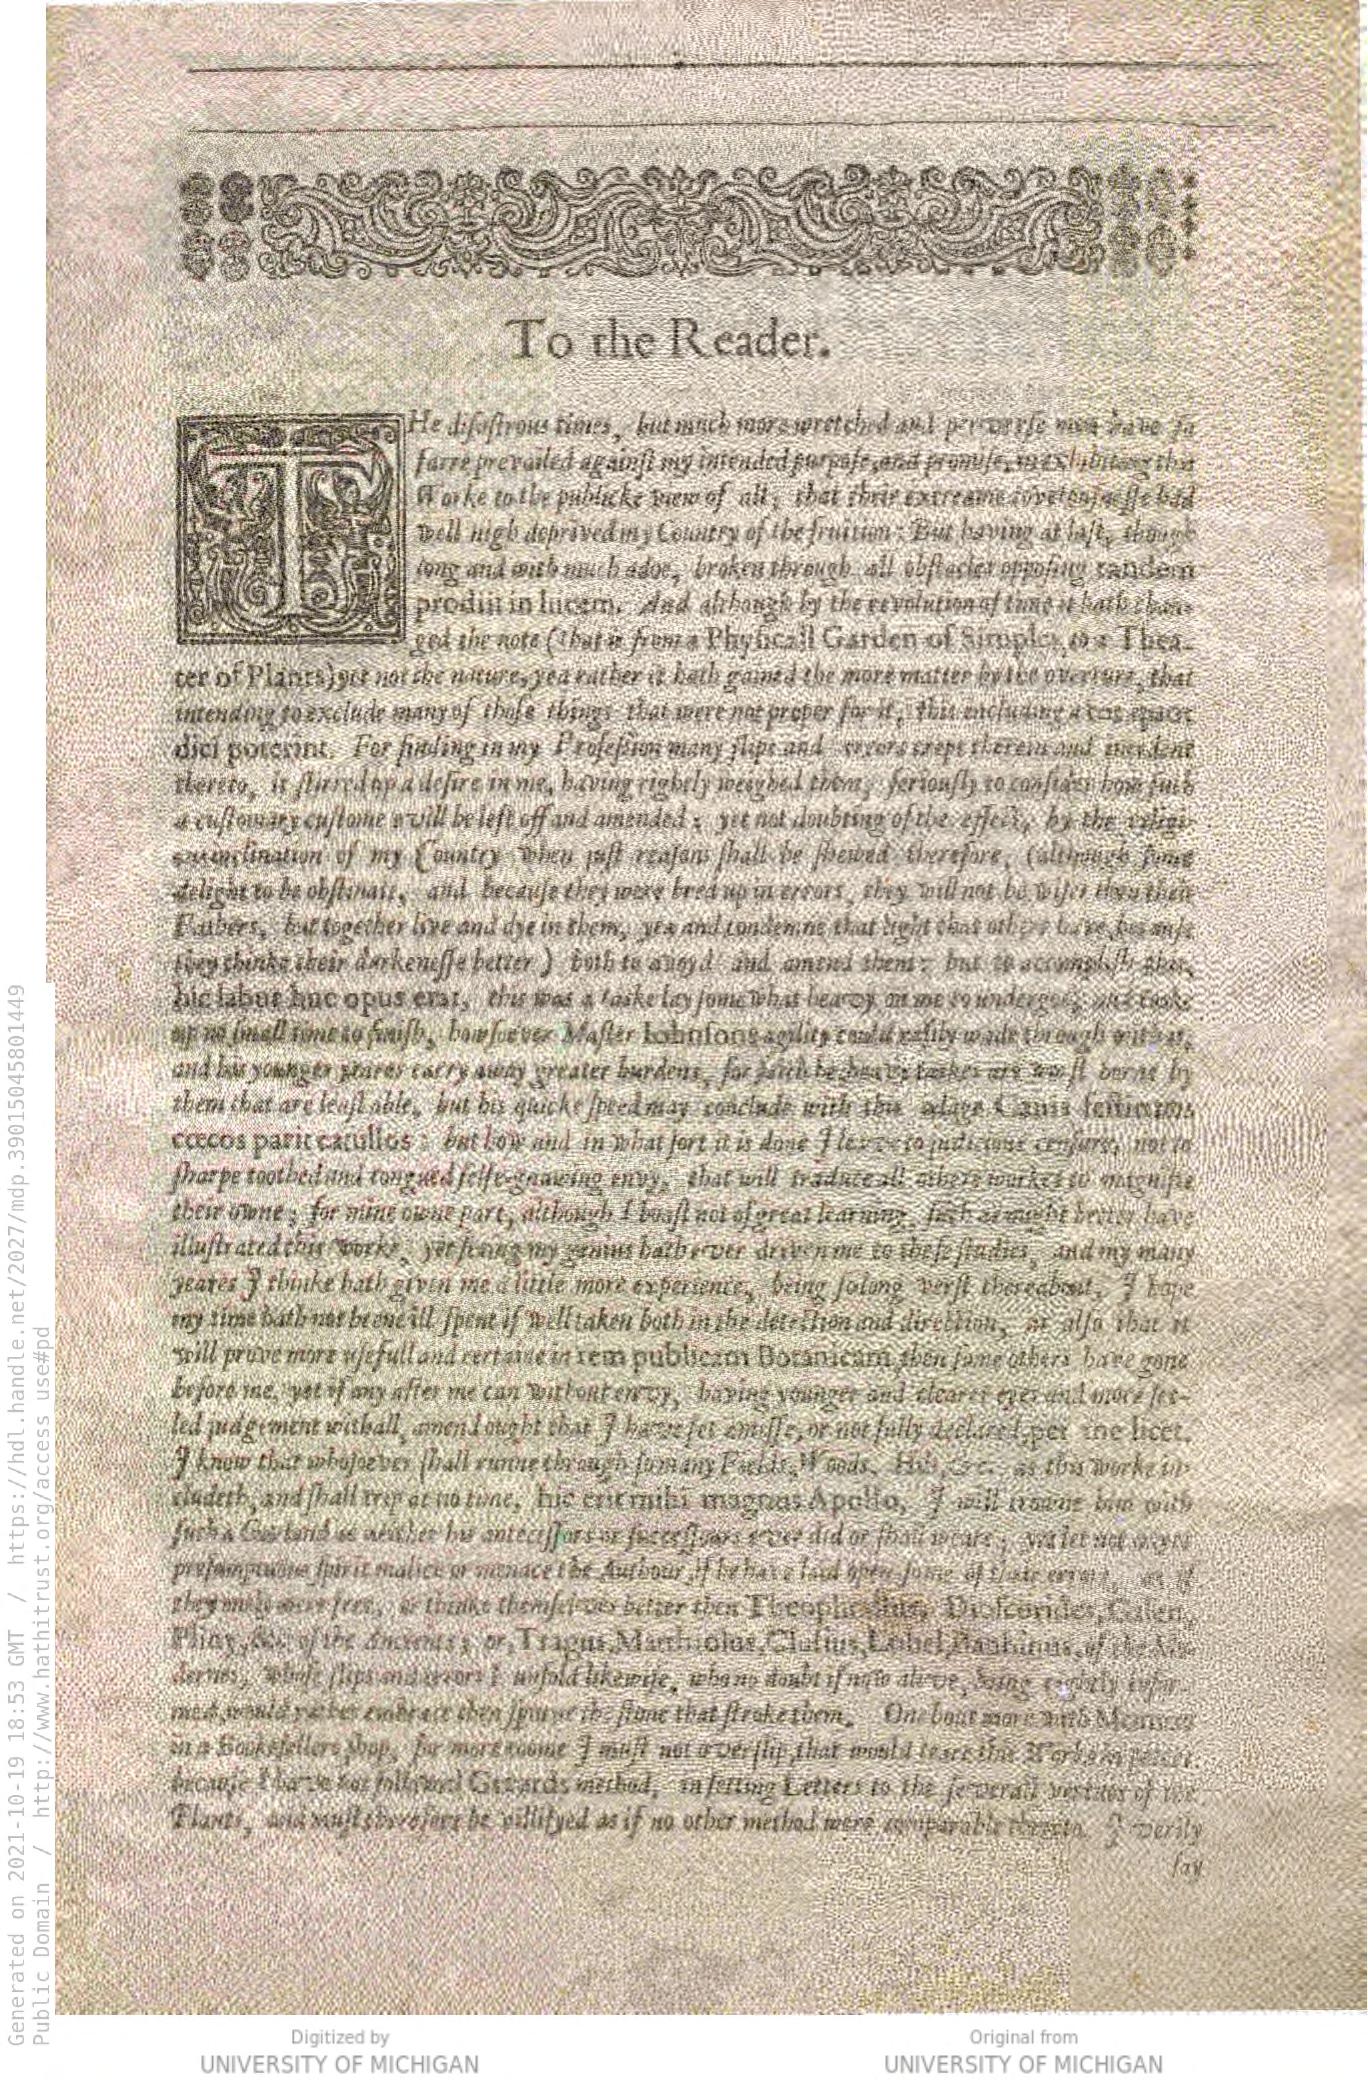 To the Reader.
THe disastrous times, but much more wretched and perverse men have so
farre prevailed against my intended purpose, and promise, in exhibiting this
Worke to the publicke view of all; that their extreame covetousnesse had
well nigh deprived my Country of the fruition: But having at last, though
long and with much adoe, broken through all obstacles opposing tandem
prodiit in lucem. And although by the revolution of time it hath chan-
ged the note (that is from a Physicall Garden of Simples, to a Thea-
ter of Plants) yet not the nature, yea rather it hath gained the more matter by the overture, that
intending to exclude many of those things that were not proper for it, this including a tot quot
dici poterint. For finding in my Profession many slips and errors crept therein and incident
thereto, it stirred up a desire in me, having rightly weighed them, seriously to consider how such
a customary custome will be left off and amended; yet not doubting of the effect, by the
inclination of my Country when just reasons shall be shewed therefore, (although some
delight to be obstinate, and because they were bred up in errors, they will not be wiser then their
Fathers, but together live and dye in them, yea and condemne that light that others have, because
they thinke their darkenesse better) both to avoyd and amend them: but to accomplish this,
hic labor hoc opus erat, this was a taske lay somewhat heavy on me to undergoe, and tooke
up no small time to finish, howsoever Master Iohnsons agility could easily wade through with it,
and his younger yeares carry away greater burdens, for such be heavie taskes are worst borne by
them that are least able, but his quicke speed may conclude with this adage Canis festinans
cœcos parit catullos: but how and in what sort it is done I leave to judicious censure, not to
sharpe toothed and tongued selfe-gnawing envy, that will traduce all others workes to magnifie
their owne; for mine owne part, although I boast not of great learning, such as might better have
illustrated this Worke, yet seeing my genius hath ever driven me to these studies, and my many
yeares I thinke hath given me a little more experience, being so long verst thereabout, I hope
my time hath not beene ill spent if well taken both in the detection and direction, as also that it
will prove more usefull and certaine in rem publicam Botanicam then some others have gone
before me. yet if any after me can without envy, having younger and clearer eyes and more set-
led judgement withall, amend ought that I have set amisse, or not fully declared, per me licet.
I know that whosoever shall runne through so many Fields, Woods, Hils, &c. as this Worke in-
cludeth, and shall trip at no time, hic erit mihi magnus Apollo, I will crowne him with
such a Garland as neither his antecessors or successours ever did or shall weare; yet let not
presumptuous spirit malice or menace the Authour, if he have laid open some of their errors, as if
they onely were free, or thinke themselves better then Theophrastus, Dioscorides, Galen,
Pliny, &c. of the Ancients; or, Tragus, Matthiolus, Clusius, Lobel, Bauhinus, of the Mo-
dernes, whose slips and errors I unfold likewise, who no doubt if now alive, being rightly infor-
med, would rather embrace then spurne the stone that stroke them. One bout more with Momus
in a Booksellers shop, for more roome I must not overslip, that would teare this Worke in peeces,
because I have not followed Gerards method, in setting Letters to the severall vertues of the
Plants, and must therefore be villifyed as if no other method were comparable thereto. I verily
say
Generated on 2021-10-19 18:53 GMT / https://hdl.handle.net/2027/mdp.39015045801449
Public Domain / http://www.hathitrust.org/access_use#pd
Digitized by
UNIVERSITY OF MICHIGAN
Original from
UNIVERSITY OF MICHIGAN